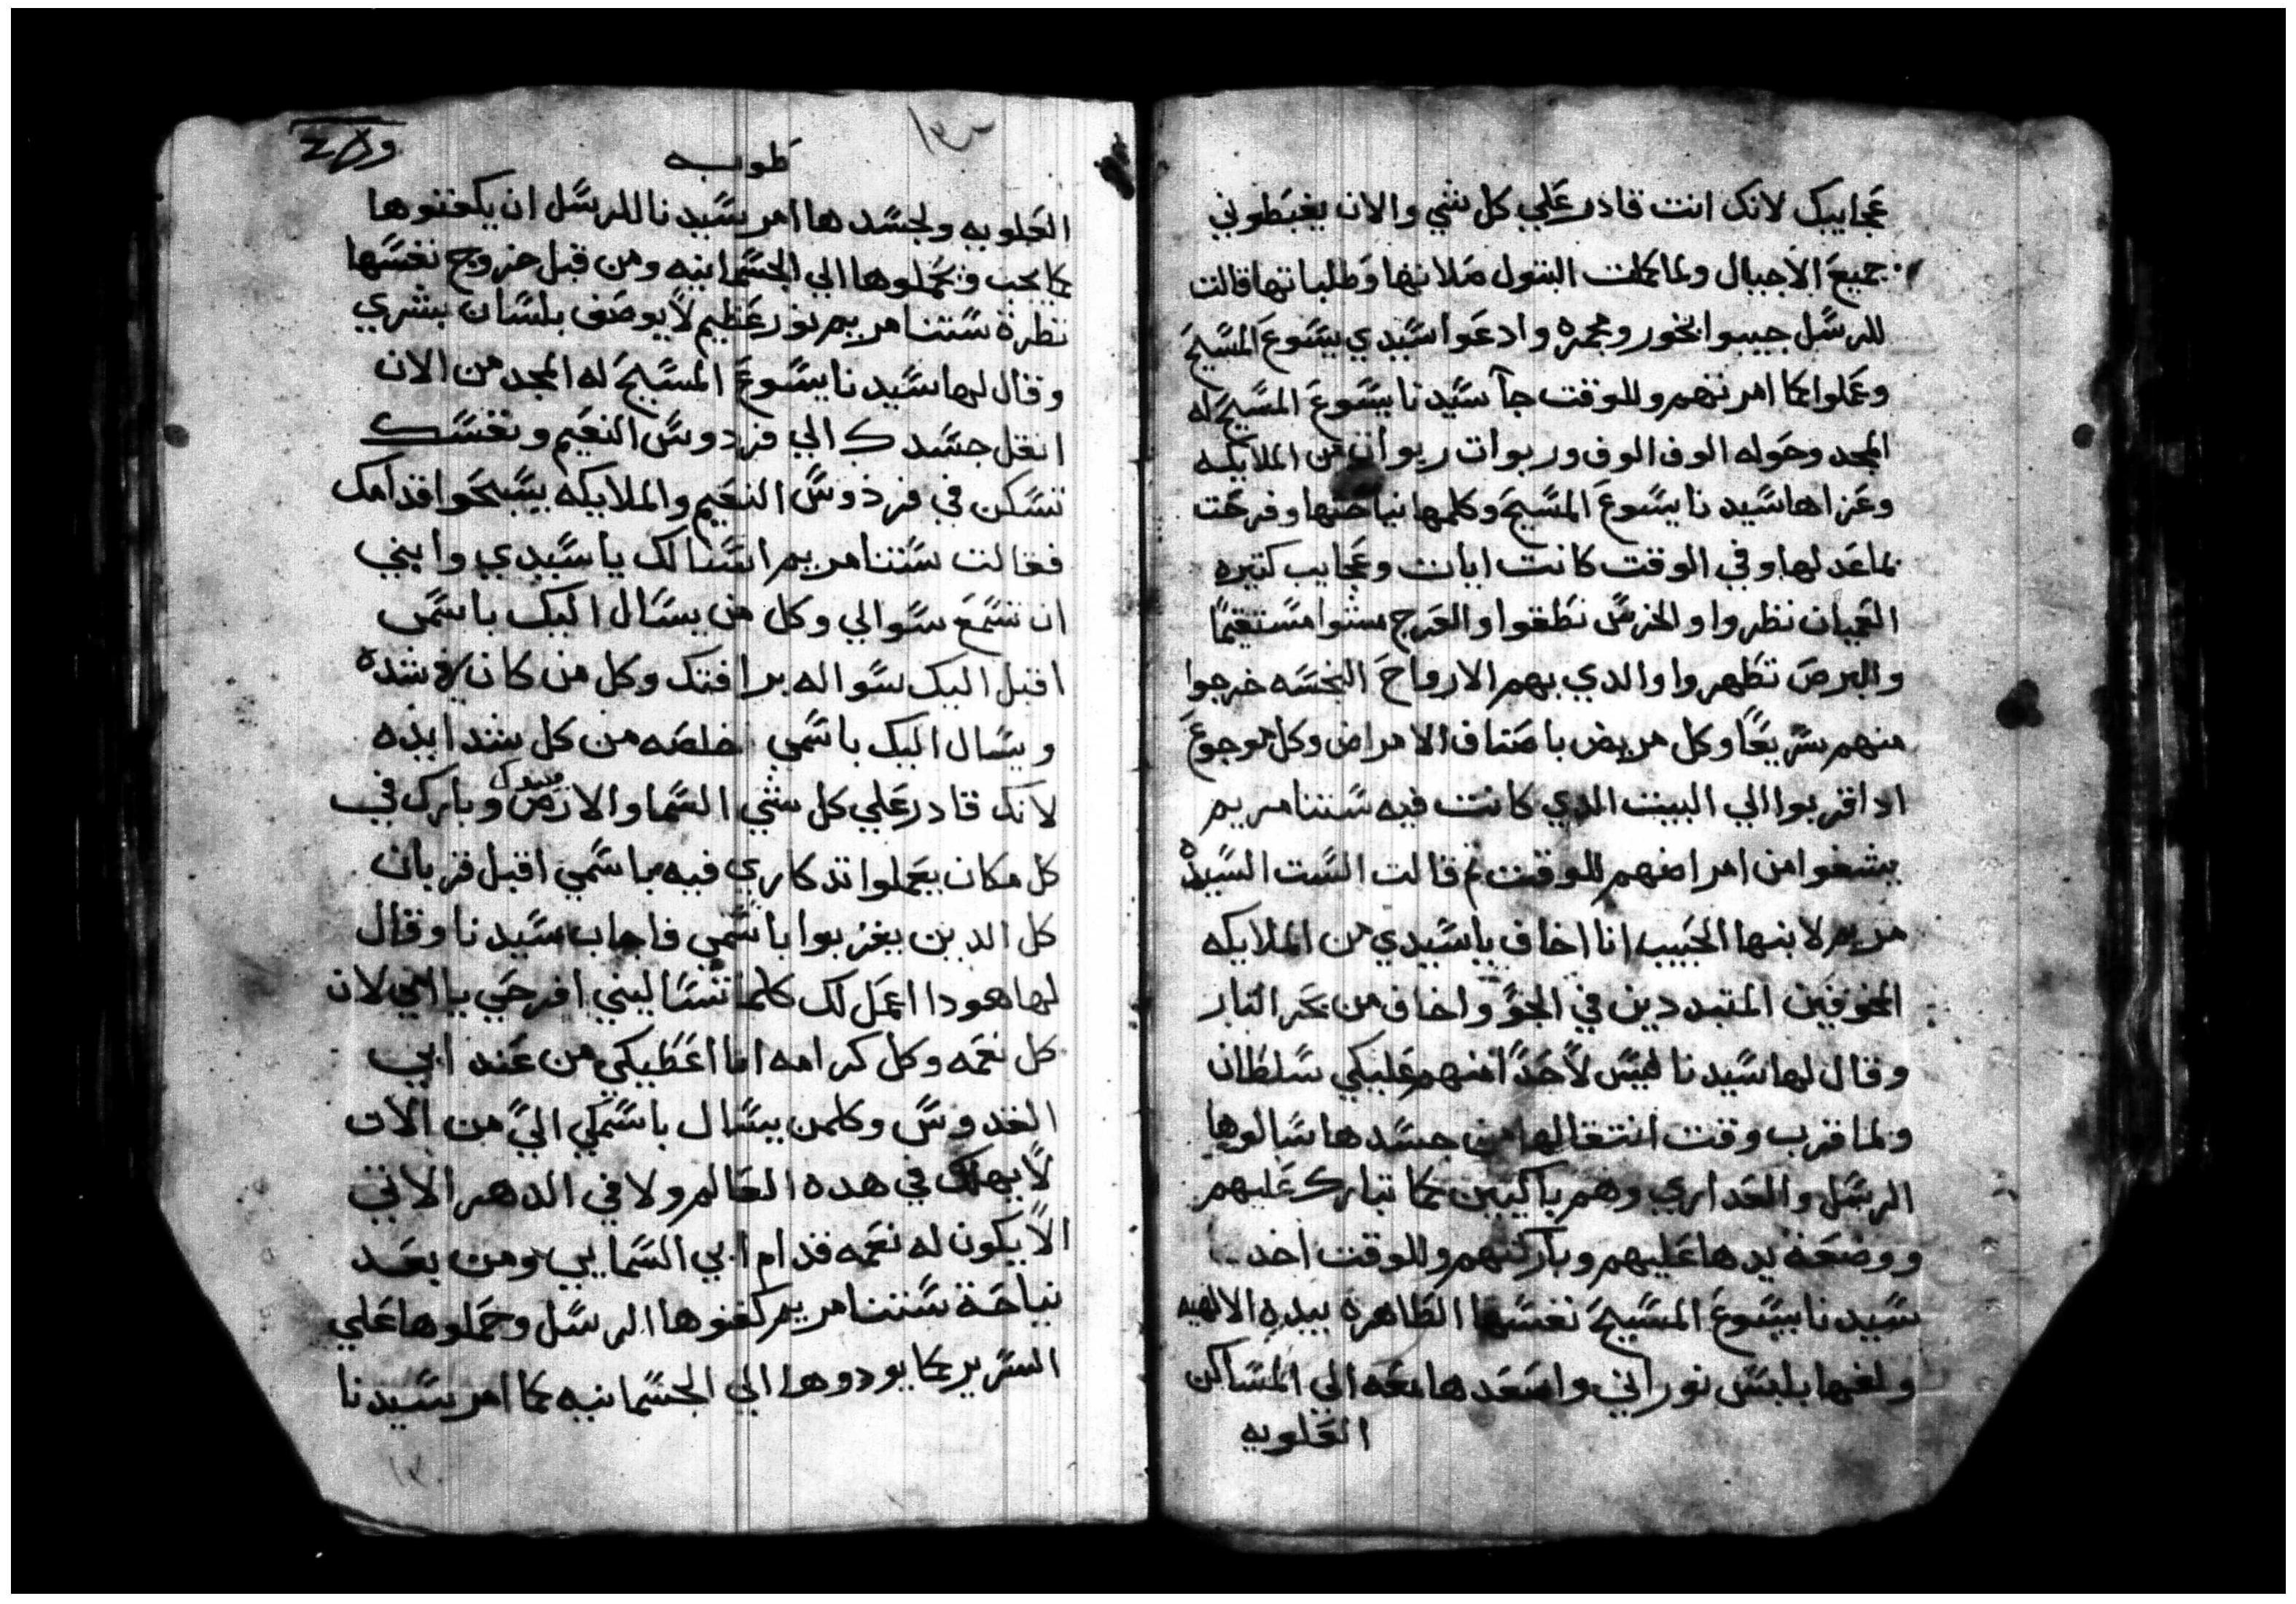 عجايبك لانك انت قادر علي كل شي والان يغبطوني
جميع الاجيال ولما كملت البتول صلاتها وطلباتها قالت
للرسل جيبوا بخور ومجمره وادعوا سيدي يسوع المسيح
وعملوا كما امرتهم وللوقت جآ سيدنا يسوع المسيح له
المجد وحوله الوف الوف وربوات ربوات من الملايكه
وعزاها سيدنا يسوع المسيح وكلمها نياحتها وفرحت
بما عد لها وفي الوقت كانت ايات وعجايب كتيره
العميان نظروا والخرس نطقوا والعرج مشوا مستقيمًا
والبرص تطهروا والدي بهم الارواح النجسه خرجوا
منهم سريعًا وكل مريض باصناف الامراض وكل موجوع
ادا قربوا الي البيت الدي كانت فيه ستنا مريم
يشفوا من امراضهم للوقت ثم قالت الست السيده
مريم لابنها الحبيب انا اخاف ياسيدي من الملايكه
المخوفين المتبددين في الجو واخاف من بحر النار
وقال لها سيدنا ليس لأحدًا منهم عليكي سلطان
ولما قرب وقت انتقالها من جسدها سالوها
الرسل والعداري وهم باكيين كما تبارك عليهم
ووضعة يدها عليهم وباركتهم وللوقت اخد
سيدنا يسوع المسيح نفسها الطاهرة بيده الالهيه
ولفها بلبس نوراني واصعدها معه الي المساكن
العلويه
طوبه
العلويه ولجسدها امر سيدنا للرسل ان يكفنوها
كما يجب ويحملوها الي الجسمانيه ومن قبل خروج نفسها
نظرة ستنا مريم نور عظيم لا يوصف بلسان بشري
وقال لها سيدنا يسوع المسيح له المجد من الان
انقل جسدك الي فردوس النعيم ونفسك
تسكن في فردوس النعيم والملايكه يسبحوا قدامك
فقالت ستنا مريم اسالك يا سيدي وابني
ان تسمع سوالي وكل من يسال اليك باسمي
اقبل اليك سواله برافتك وكل من كان في شده
ويسال اليك باسمي خلصه من كل شدايده
لانك قادر علي كل شي السما والارض وبارك في
كل مكان يعملوا تدكاري فيه باسمي اقبل قربان
كل الدين يقربوا باسمي فاجاب سيدنا وقال
لها هودا اعمل لك كلما تساليني افرحي يا امي لان
كل نعمه وكل كرامه انا اعطيكي من عند ابي
القدوس وكلمن يسال باسمكي اليّ من الان
لا يهلك في هده العالم ولا في الدهر الاتي
الا يكون له نعمه قدام ابي السمايي ومن بعد
نياحة ستنا مريم كفنوها الرسل وحملوها علي
السرير كما يودوها الي الجسمانيه كما امر سيدنا